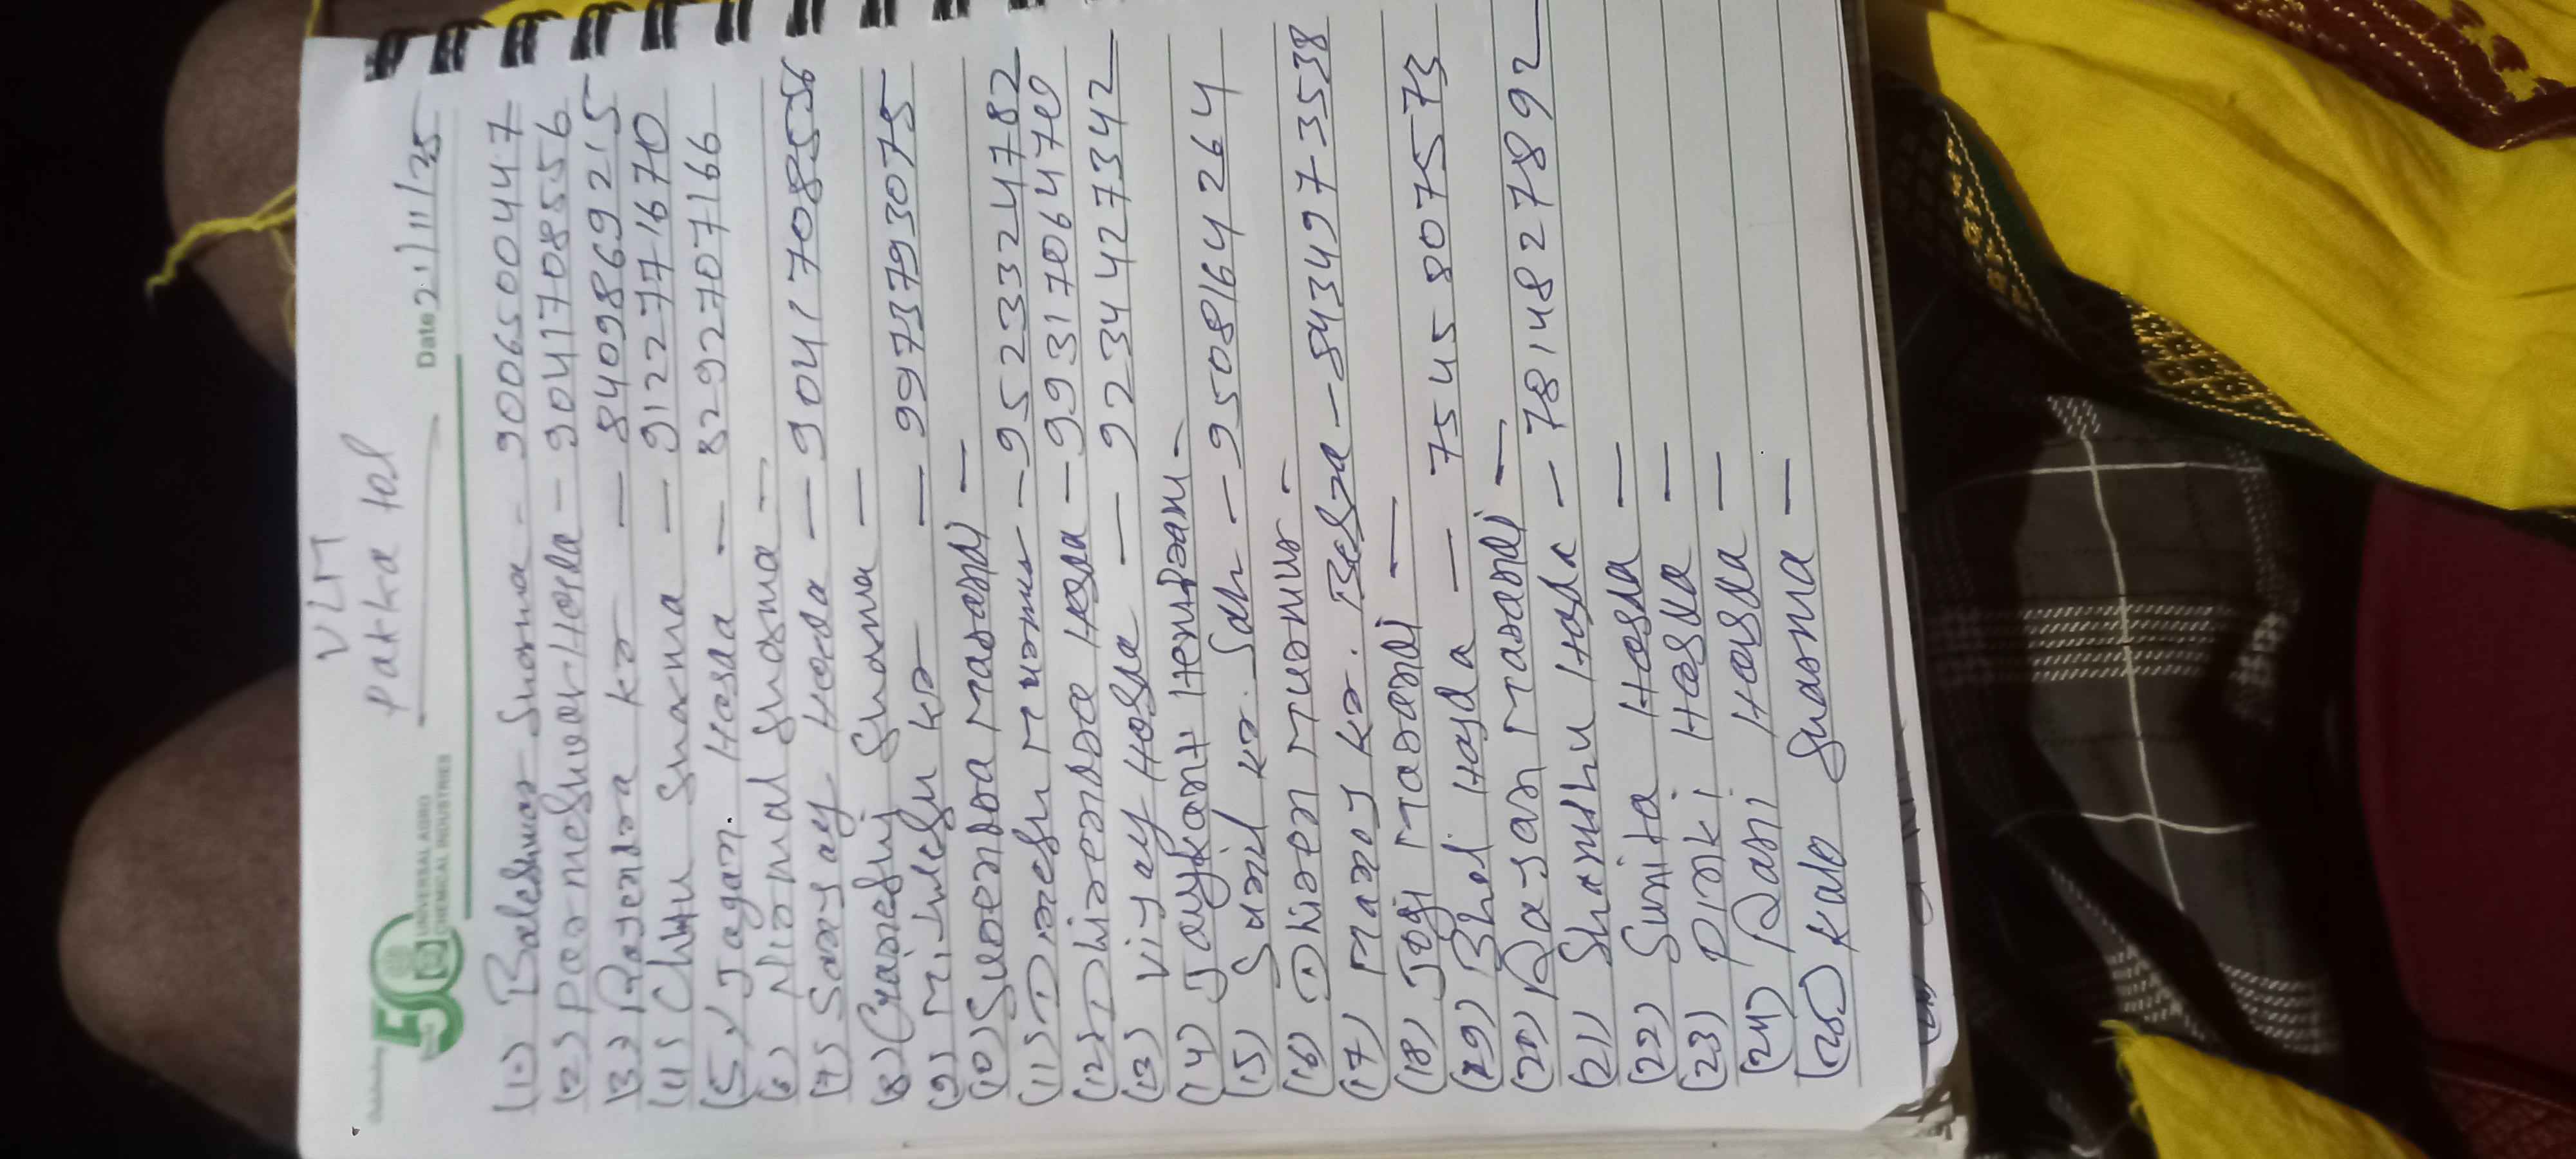 VLM
Pakka tol
50
UNIVERSAL AGRO
CHEMICAL INDUSTRIES
Date 21/11/25
(1) Baleshwar Sharma - 9006500447
(2) Parmeshwar Hasda - 9041708556
(3) Rajendra Kr - 8409869215
(4) Sharma - 9122771670
(5) Jagan. Hasda - 8292707166
(6) Nirmal Sharma -
(7) Sanjay Hasda - 9041708556
(8) Ganesh Sharma -
(9) Mithlesh Kr - 9973793075
(10) Surendra Marandi -
(11) Dinesh Murmur - 9523324782
(12) Dhirendra Hasda - 9931706470
(13) Vijay Hasda - 9234427342
(14) Jaykant Hembram -
(15) Sunil Kr. Sah - 9508164264
(16) Dhiren Murmur -
(17) Manoj Kr. Besra - 8434973538
(18) Jogi Marandi -
(19) Bhel Hasda - 7545807573
(20) Rajan Marandi -
(21) Shambhu Hasda - 7814827892
(22) Sunita Hasda -
(23) Pinki Hasda -
(24) Rani Hasda -
(25) Kalo Sharma -